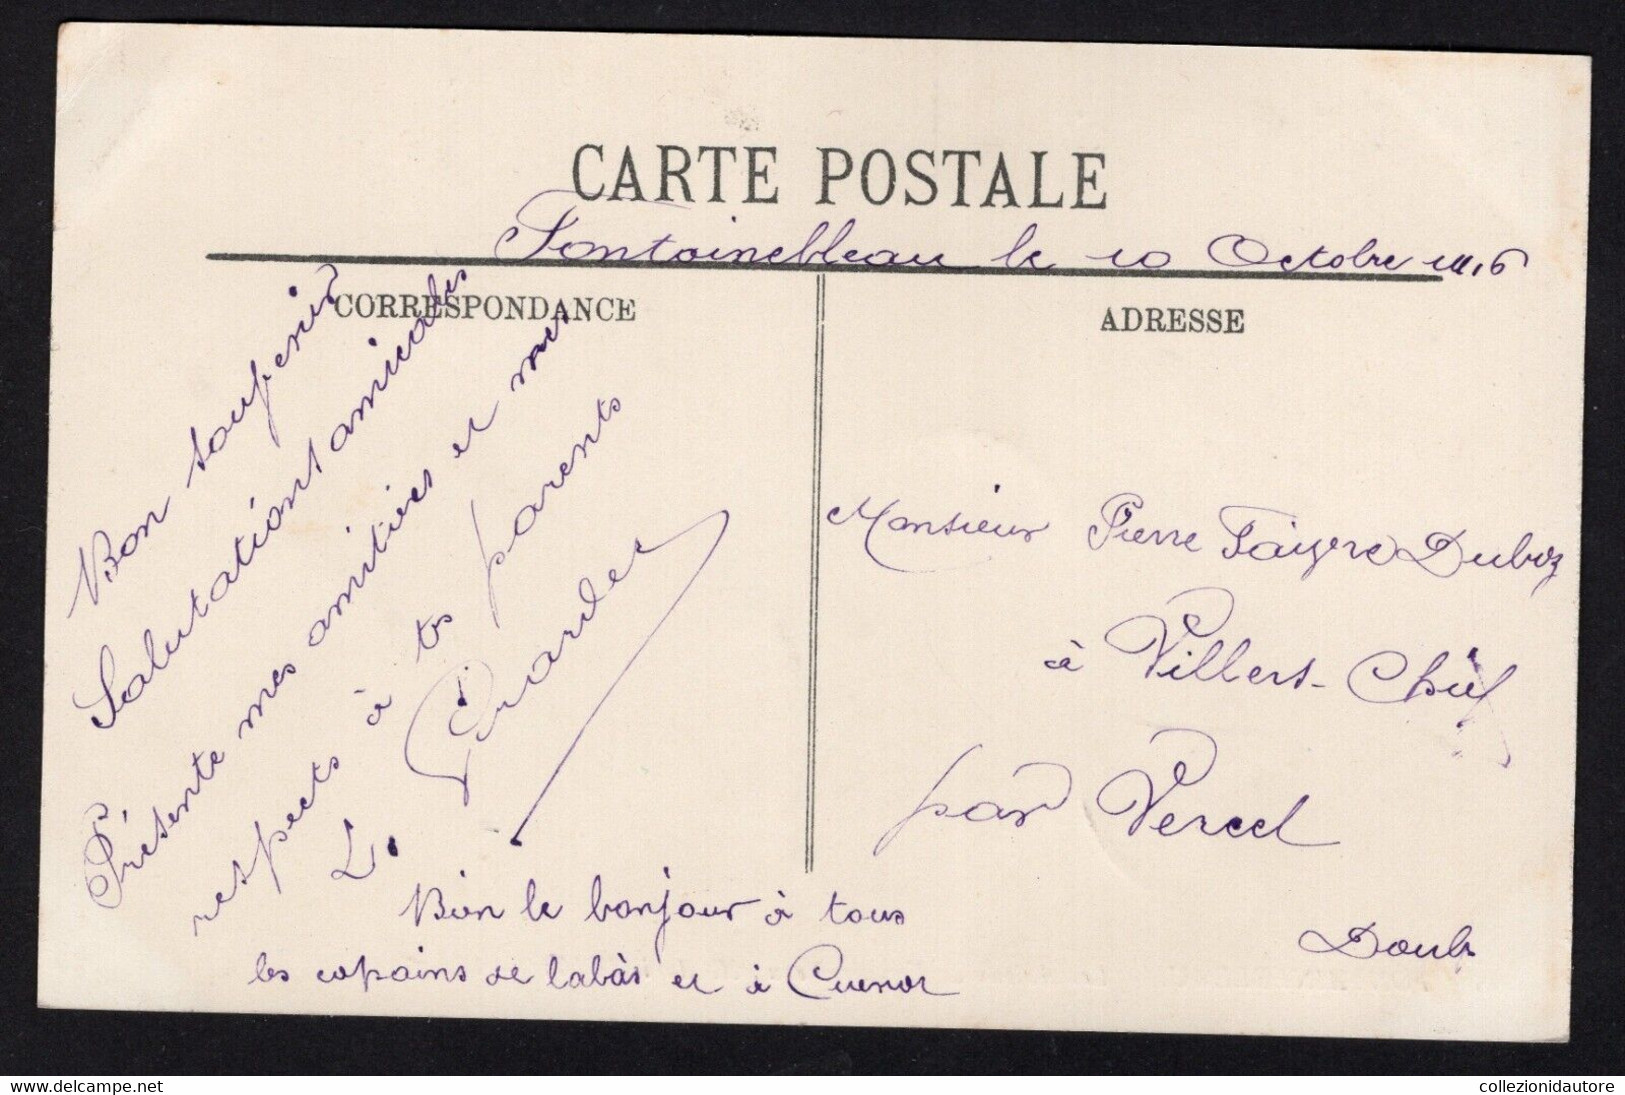 CARTE POSTALE
Fontainebleau le 10 Octobre
CORRESPONDANCE
ADRESSE
Bon soupenir
Salutations amicales
Présente mes amitiés et mes
respects à tes parents
L.
Bien le bonjour à tous
les copains de labàs et à Cuenot
Monsieur Pierre Faivre Duboz
à Villers-Chief
par Vercel
Doubs
www.delcampe.net
collezionidautore